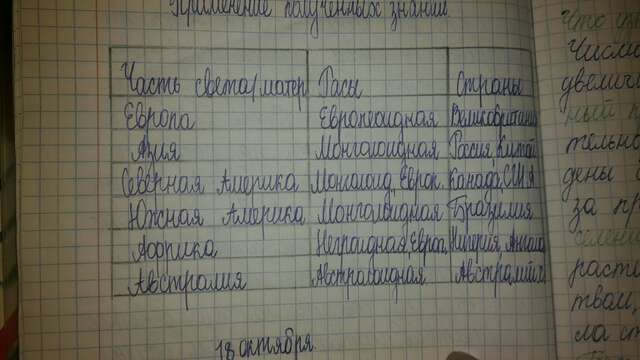 Применение полученных знаний.
Часть света/матер Расы Страны
Европа Европеоидная Великобритания
Азия Монголоидная Россия, Китай
Северная Америка Монголоид, Европ. Канада, США
Южная Америка Монголоидная Бразилия
Африка Негроидная, Европ. Нигерия, Ангола
Австралия Австралоидная Австралия
18 октября.
Число
увеличи
ный п
тельно
дены
за пр
селени
расте
твам,
ла ст